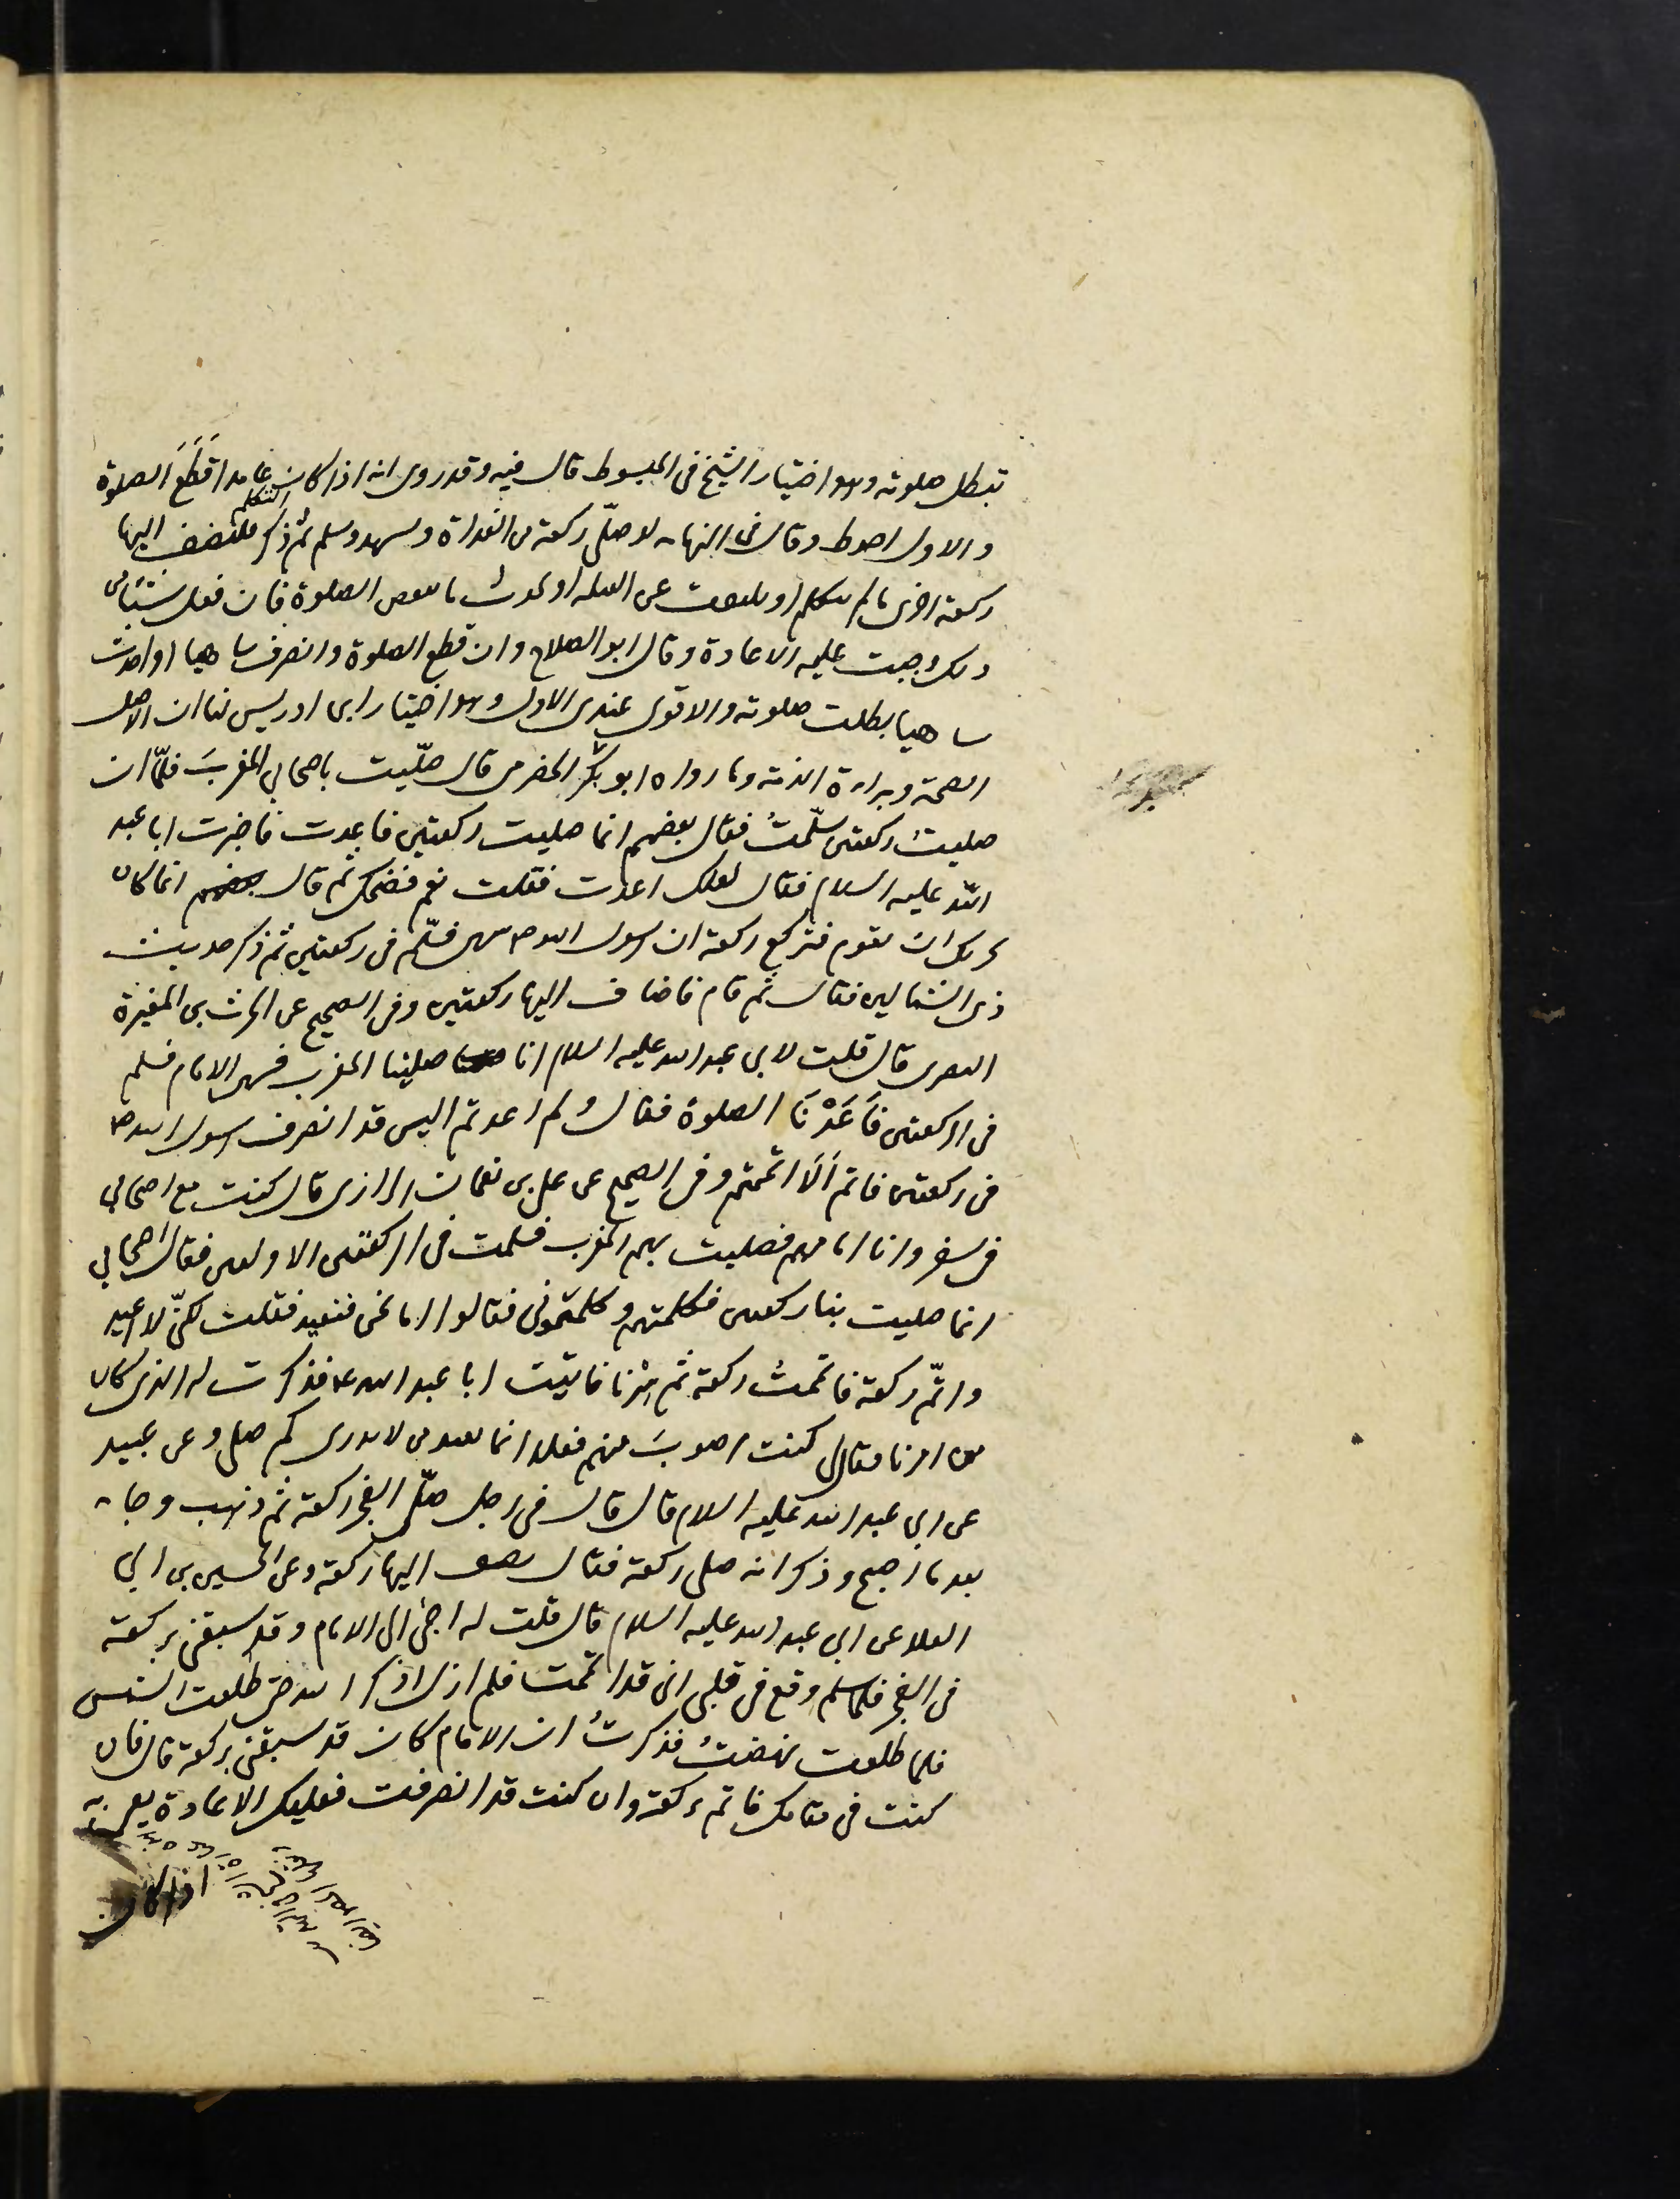 تبطل صلوته وهو اختيار الشيخ فى المبسوط قال فيه وقد روى انه اذا كان عامدا قَطَعَ الصلوة
التكلم
والاول احوط وقال فى النهايه لو صلّى ركعة من الغداة وتشهد وسلم ثم ذكر فليضف اليها
ركعة اخرى ما لم يتكلم او يلتفت عن القبلة او يحدث ما ينقض الصلوة فان فعل شيئا من
ذلك وجبت عليه الاعادة وقال ابو الصلاح وان قطع الصلوة وانصرف ساهيا او احدث
ساهيا بطلت صلوته والاقوى عندى الاول وهو اختيار ابن ادريس لنا ان الاصل
الصحة وبراءة الذمة وما رواه ابو بكر الحضرمى قال صلّيت باصحابي المغربَ فلمّا ان
صليتُ ركعتين سلّمتُ فقال بعضهم انما صليت ركعتين فاعدت فاخبرت ابا عبد
اللّه عليه السلام فقال لعلك اعدت فقلت نعم فضحك ثم قال انما كان
يجزيك ان تقوم فتركع ركعة ان رسول الله ص سهى فسلّم فى ركعتين ثم ذكر حديث
ذى الشمالين فقال ثم قام فاضاف اليها ركعتين وفى الصحيح عن الحرث بن المغيرة
النصرى قال قلت لابي عبد الله عليه السلام انا صلينا المغرب فسهى الامام فسلم
فى الركعتين فَاَعَدْنَا الصلوة فقال ولم اعدتم اليس قد انصرف رسول الله ص
فى ركعتين فاتم اَلَا اتممتم وفى الصحيح عن على بن نعمان الرازى قال كنت مع اصحابي
فى سفر وانا امامهم فصليت بهم المغرب فسلمت فى الركعتين الاولتين فقال اصحابي
انما صليت بنا ركعتين فكلمتهم وكلمتمونى فقالوا اما نحن فنعيد فقلت لكنّى لا اعيد
واتمّ ركعة فاتممتُ ركعة ثم سِرْنا فاتيت ابا عبد الله ع فذكرت له الذى كان
من امرنا فقال كنت اصوبَ منهم فعلا انما يعيد من لا يدرى كم صلى وعن عبيد
عن ابي عبد الله عليه السلام قال قال فى رجل صلّى الفجر ركعة ثم ذهب وجاء
بعد ما اصبح وذكر انه صلى ركعة فقال يضيف اليها ركعة وعن الحسين بن ابي
العلا عن ابي عبد الله عليه السلام قال قلت له اجئ الى الامام وقد سبقنى بركعة
فى الفجر فلما سلم وقع فى قلبى انى قد اتممت فلم ازل اذكر الله حتى طلعت الشمس
فلما طلعت نهضتُ فذكرتُ ان الامام كان قد سبقنى بركعة قال فان
كنت فى مقامك فاتم بركعة وان كنت قد انصرفت فعليك الاعادة
اذا كان